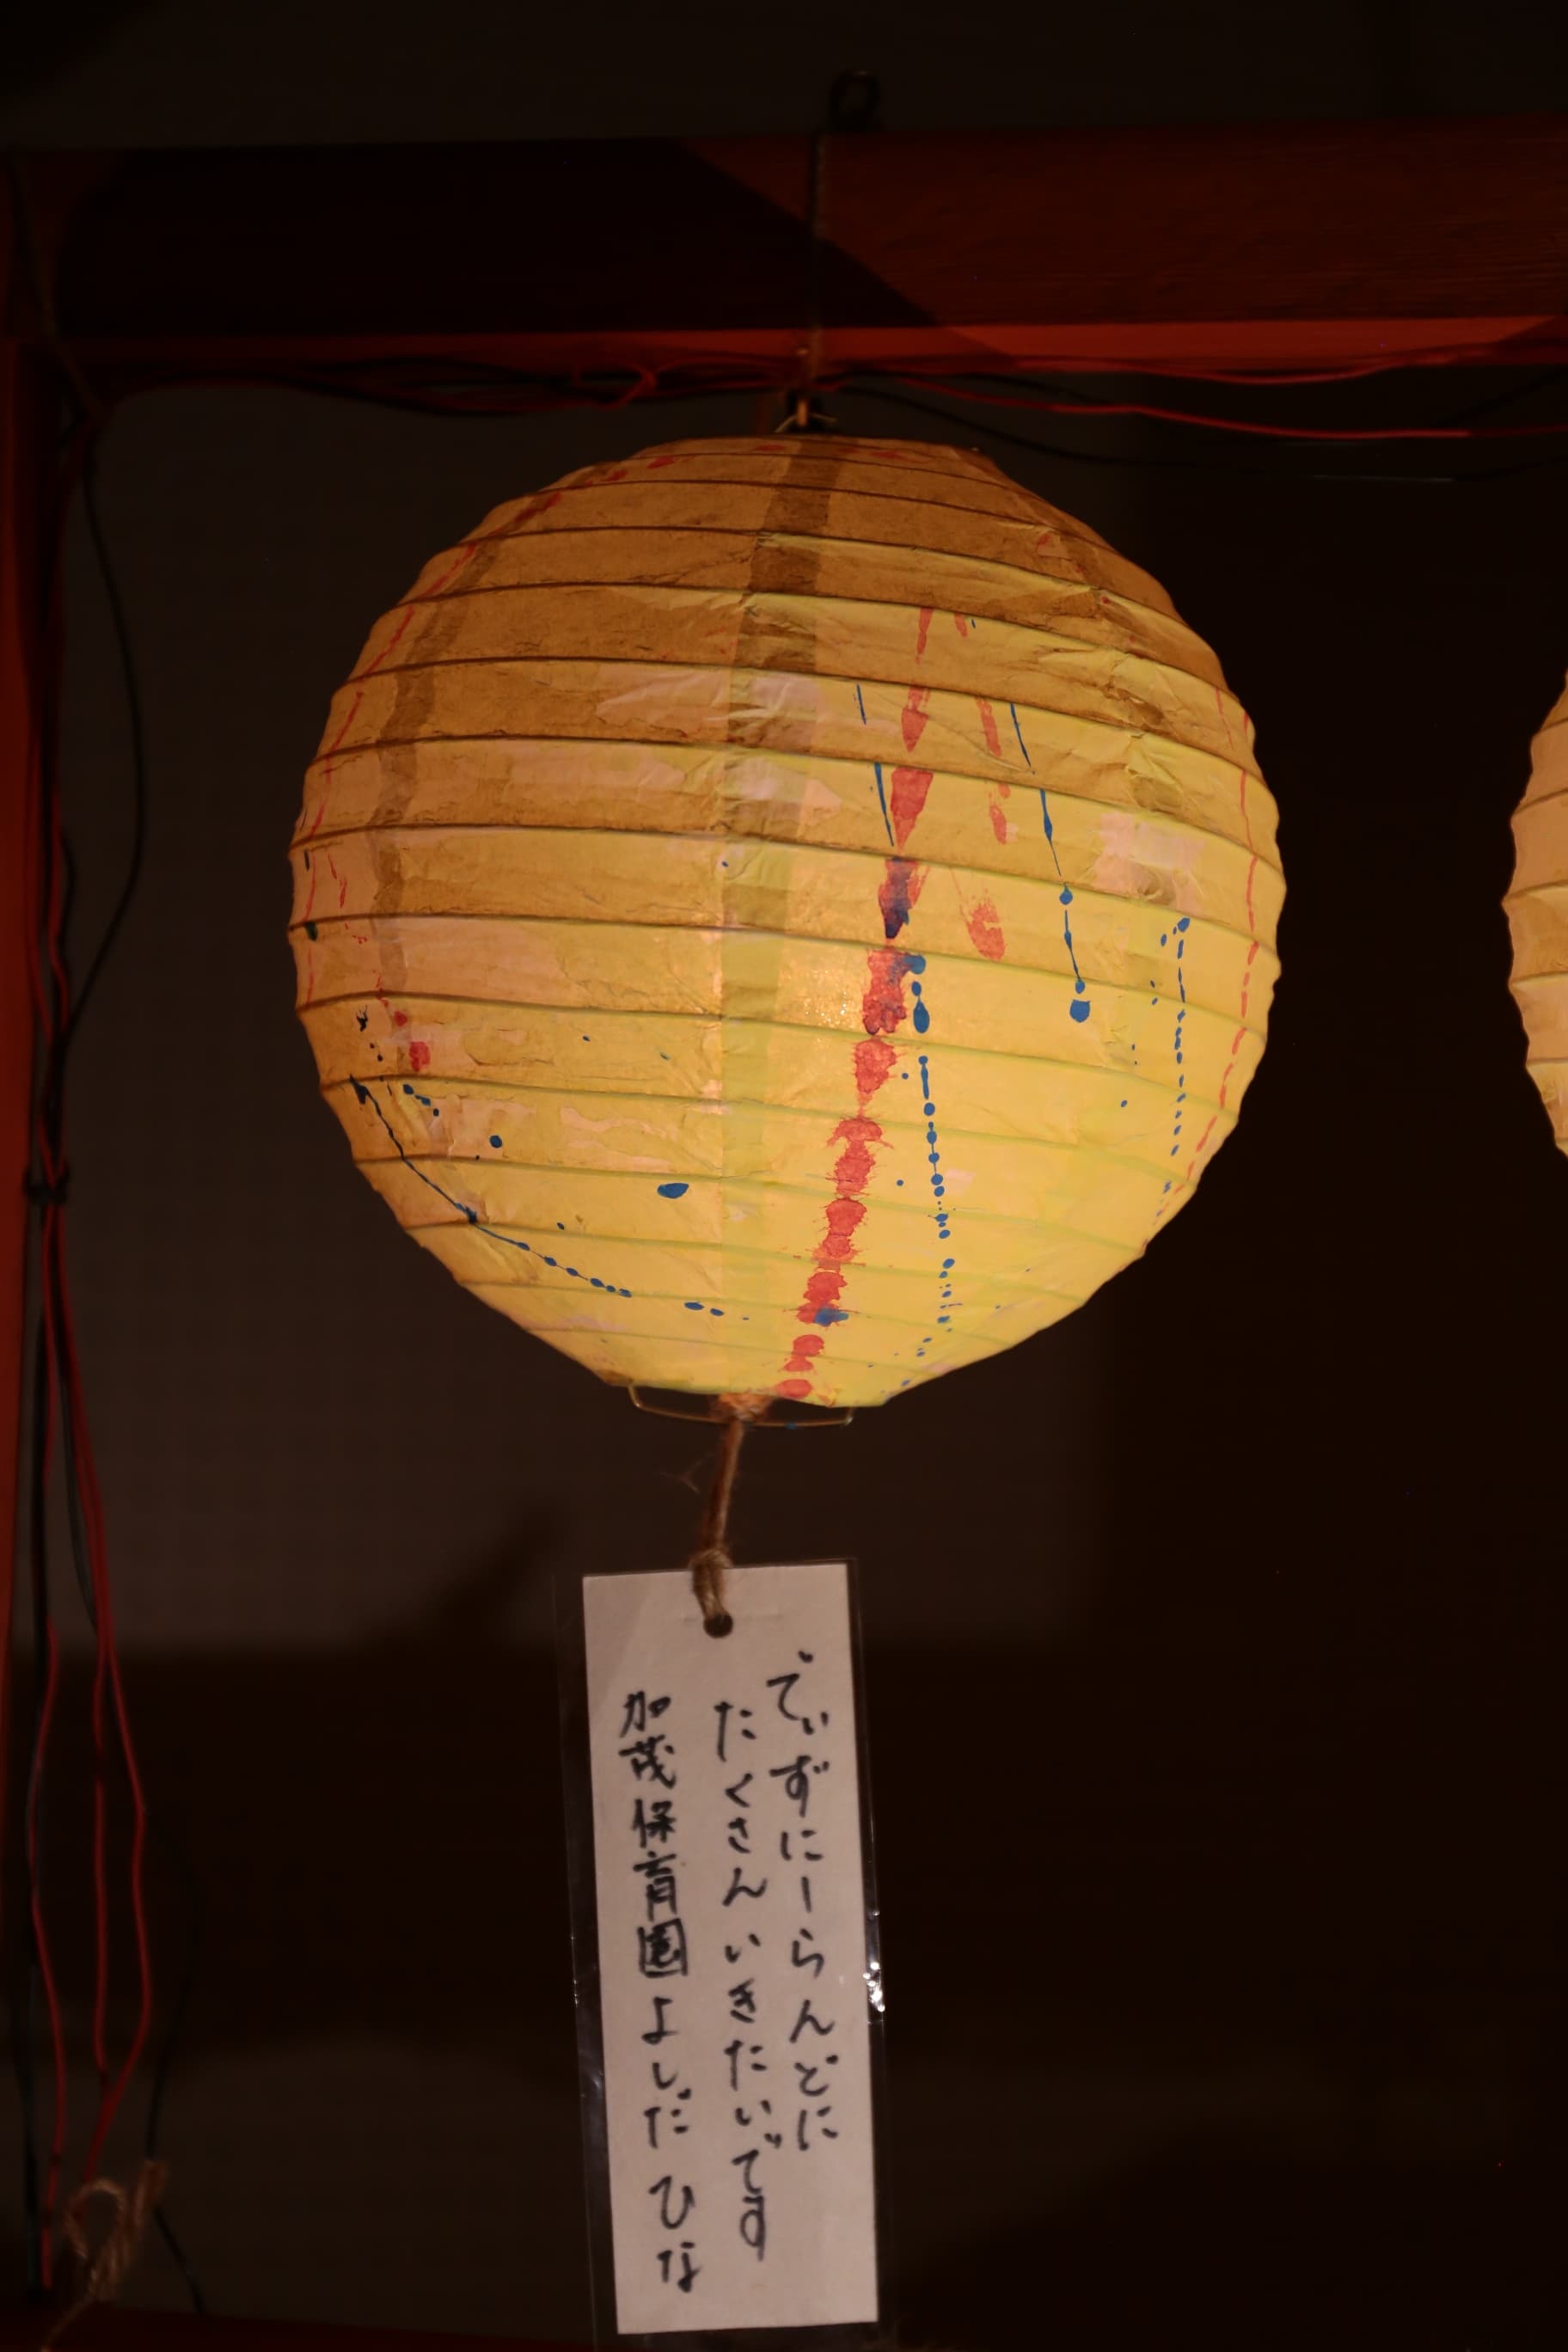 でぃずにーらんどに
たくさんいきたいです
加茂保育園 よしだ ひな